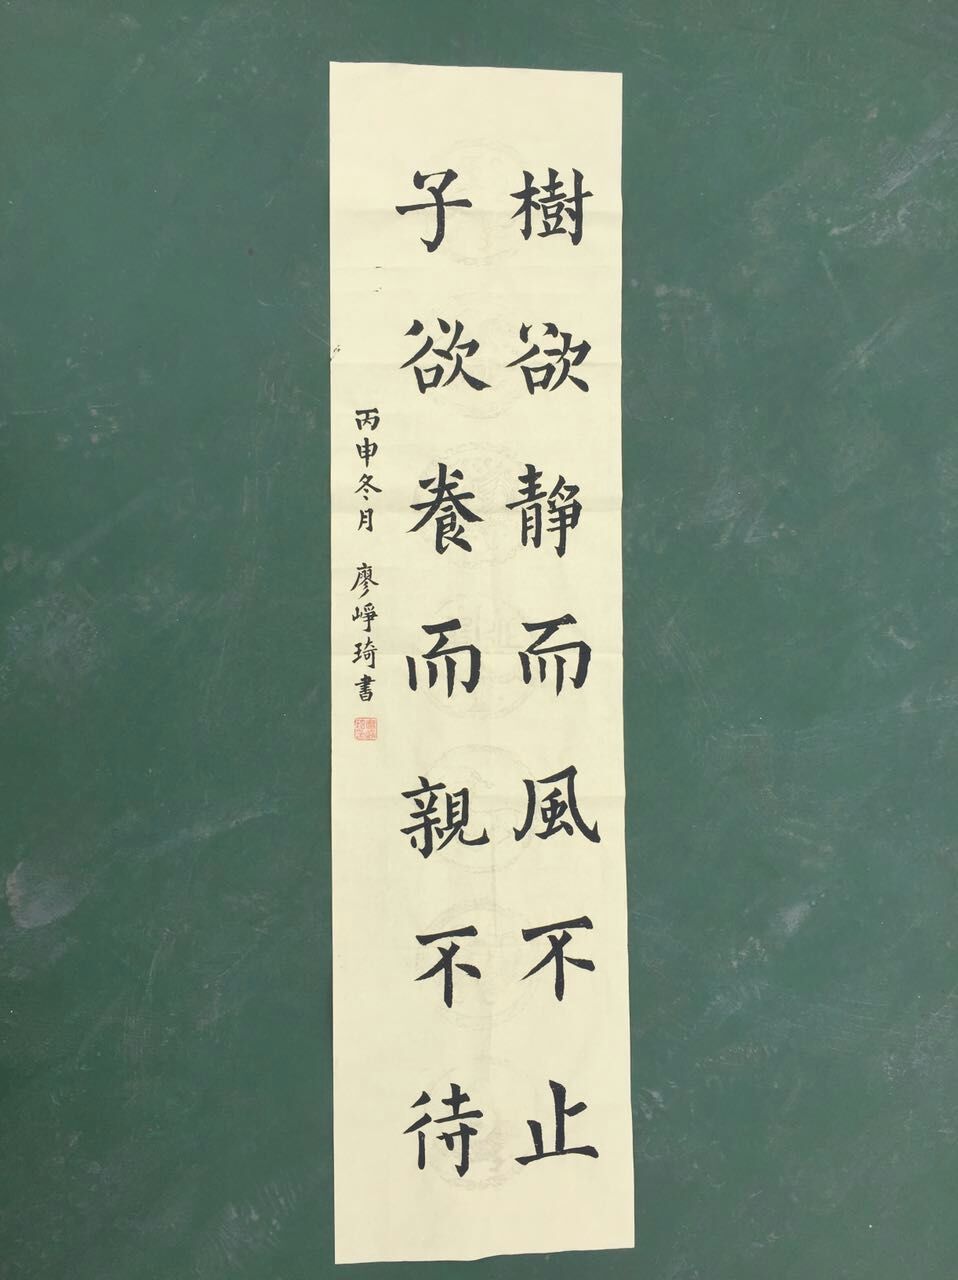 樹欲靜而風不止
子欲養而親不待
丙申冬月 廖崢琦書